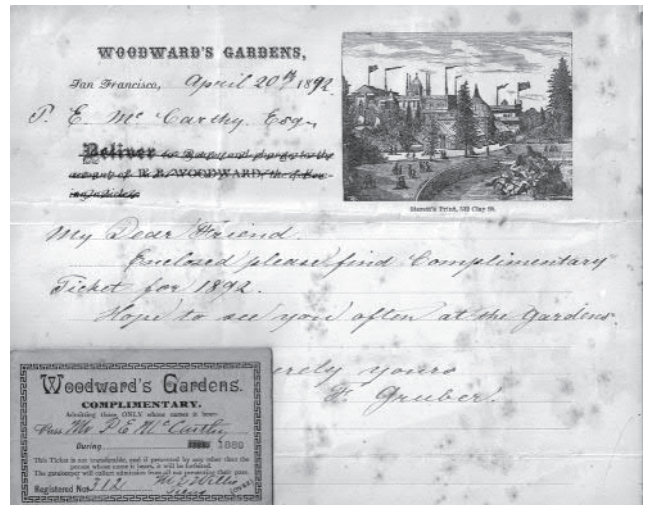 WOODWARD'S GARDENS,
San Francisco, April 20th 1892.
P. E. McCarthy. Esq.
Deliver to Bearer and charge to the
account of R. B. WOODWARD the follow-
ing articles
Sterett's Print, 532 Clay St.
My Dear Friend.
Enclosed please find Complimentary
Ticket for 1892.
Hope to see you often at the Gardens.
erely yours
F. Gruber.
Woodward's Gardens.
COMPLIMENTARY.
Admitting those ONLY whose names it bears
Pass Mr P E McCarthy
During 1880
This Ticket is not transferable, and if presented by any other than the
person whose name it bears, it will be forfeited.
The gatekeeper will collect admission from all not presenting their pass.
Registered No. 312
(OVER)